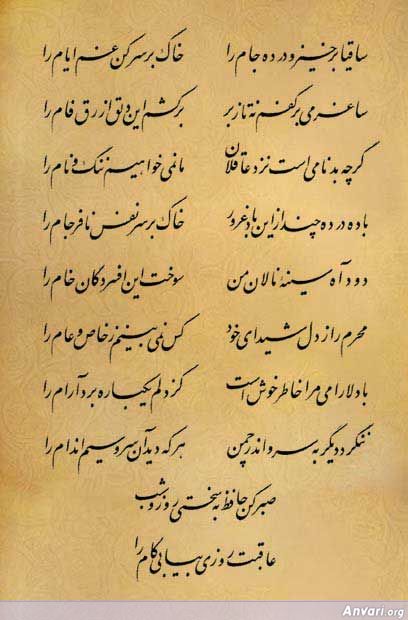 ساقیا برخیز و درده جام را خاک بر سر کن غم ایام را
ساغر می بر کفم نه تا ز بر برکشم این دلق ازرق فام را
گرچه بدنامی است نزد عاقلان ما نمی خواهیم ننگ و نام را
باده درده چند از این باد غرور خاک بر سر نفس نافرجام را
دود آه سینهٔ نالان من سوخت این افسردگان خام را
محرم راز دل شیدای خود کس نمی بینم ز خاص و عام را
با دلارامی مرا خاطر خوش است کز دلم یکباره برد آرام را
ننگرد دیگر به سرو اندر چمن هر که دید آن سرو سیم اندام را
صبر کن حافظ به سختی روز و شب
عاقبت روزی بیابی کام را
Anvari.org